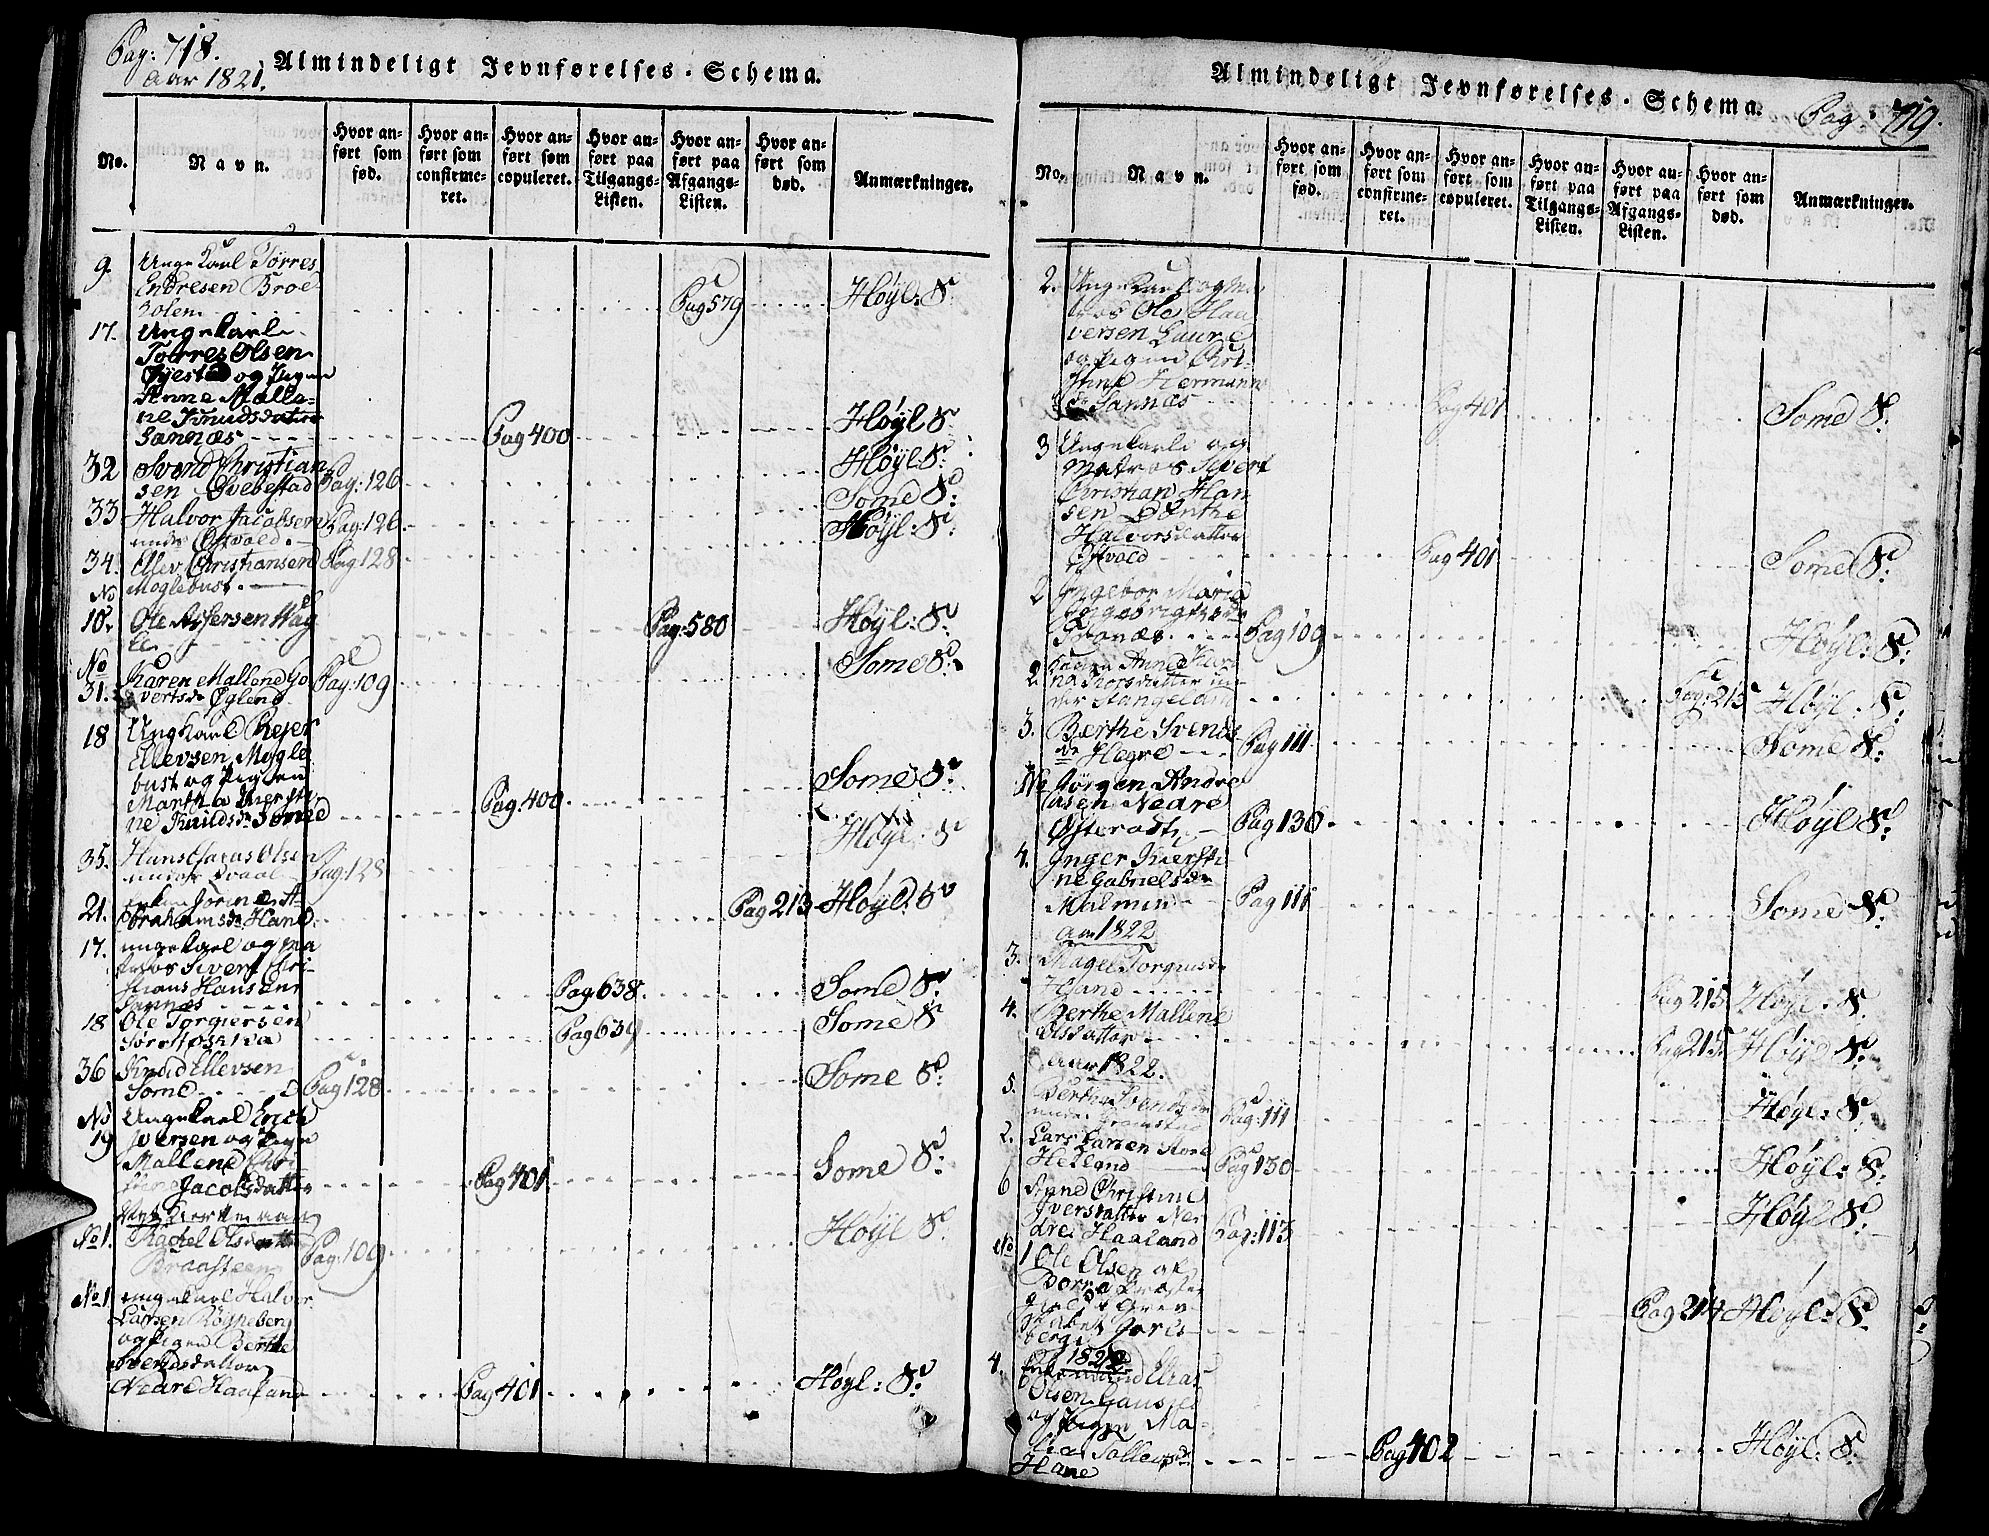 Pag: 718.
Aar 1821.
Almindeligt Jevnførelses-Schema.
No.
Navn.
Hvor anført som fød.
Hvor anført som confirmeret.
Hvor anført som copuleret.
Hvor anført paa Tilgangs-Listen.
Hvor anført paa Afgangs-Listen.
Hvor anført som død.
Anmærkninger.
9. Ungekarl Tørres
Endresen Broe
holen Pag 579 Høyl: S:
17. Ungekarl
Tørres Olsen
Øyestad og Pigen
Anne Malle-
ne Knudsdatter
Sannæs Pag 400 Høyl S:
32 Svend Christian
sen Svebestad Pag: 126 Høyl: S:
33 Halvor Jacobsen Pag: 126 Some S:
under Østvold. Høyl: S:
34. Ellev Christiansen Pag 128
Moglebust.
No
10. Ole Hag
Pag: 580 Høyl: S:
No
31. Karen Mallene Go
vertsdr Øglend Pag: 109 Some S:
18 Ungkarl Rejer
Ellevsen Mogle
bust og Pigen
Martha Kiersti
ne Knudsdr Some Pag: 400 Some S:
35. Hans Olsen
under Pag: 128 Høyl: S:
21. Jorine A-
brahamsdr Hane Pag 213 Høyl: S:
17. ungekarl og ma
tros Sivert Chri-
stians Hansen
Sannæs Pag: 638 Some S:
18 Ole Torgiersen Pag 639 Some S:
36 Knud Ellevsen
Some Pag 128 Some S:
No Ungekarl Erich
19 Iversen og Pige
Mallene Chri
stine Jacobsdatter Pag 401 Some S:
No 1. Rachel Olsdatter
Braasteen Pag: 109 Høyl S:
No 1 ungekarl Halvor
Larsen Rønneberg
og Pigen Berthe
Svendsdatter
Nedre Haaland Pag 401 Høyl: S:
Almindeligt Jevnførelses-Schema.
Pag: 719.
No.
Navn.
Hvor anført som fød.
Hvor anført som confirmeret.
Hvor anført som copuleret.
Hvor anført paa Tilgangs-Listen.
Hvor anført paa Afgangs-Listen.
Hvor anført som død.
Anmærkninger.
2. Ungekarl og ma
tros Ole Hal
versen Laure
og Pigen Chri-
stine Hermann
dr Sannæs Pag 401 Some S:
3 Ungekarl og
Matros Sivert
Christian Han
sen Dorthe
Halvorsdatter
Østvold Pag 401 Some S:
2 Ingebor Maria
Ingebrigtsdr
Pag 109 Høyl: S:
2. Anne Kari
na Thorsdatter un-
der Stangeland Pag: 213 Høyl: S:
3. Berthe Svends
dr Hegre Pag 111 Some S:
No Jørgen Andre
asen Nedre
Pag 130 Høyl S:
4. Inger Kiersti
ne Gabrielsdr
Malmin Pag 111 Some S:
Aar 1822
3. Magel
Pag 215 Høyl: S:
4. Berthe Mallene
Olsdatter Pag 215 Høyl S:
Aar 1822.
5. Berthe Svendsdr
under Pag: 111 Høyl: S:
2. Lars Larsen Store
Helland Pag 130 Høyl: S:
6 Anne Christine
Iversdatter Ne-
dre Haaland Pag: 113 Høyl S:
No
1 Ole Olsen af
Borre Præste
gield Grev-
skabet Jarls-
berg Pag 214 Høyl: S:
1822
4. Enkemand Elias
Olsen Gausel
og Pigen Ma-
lena Tollevsdr
Hane Pag 402 Høyl: S: